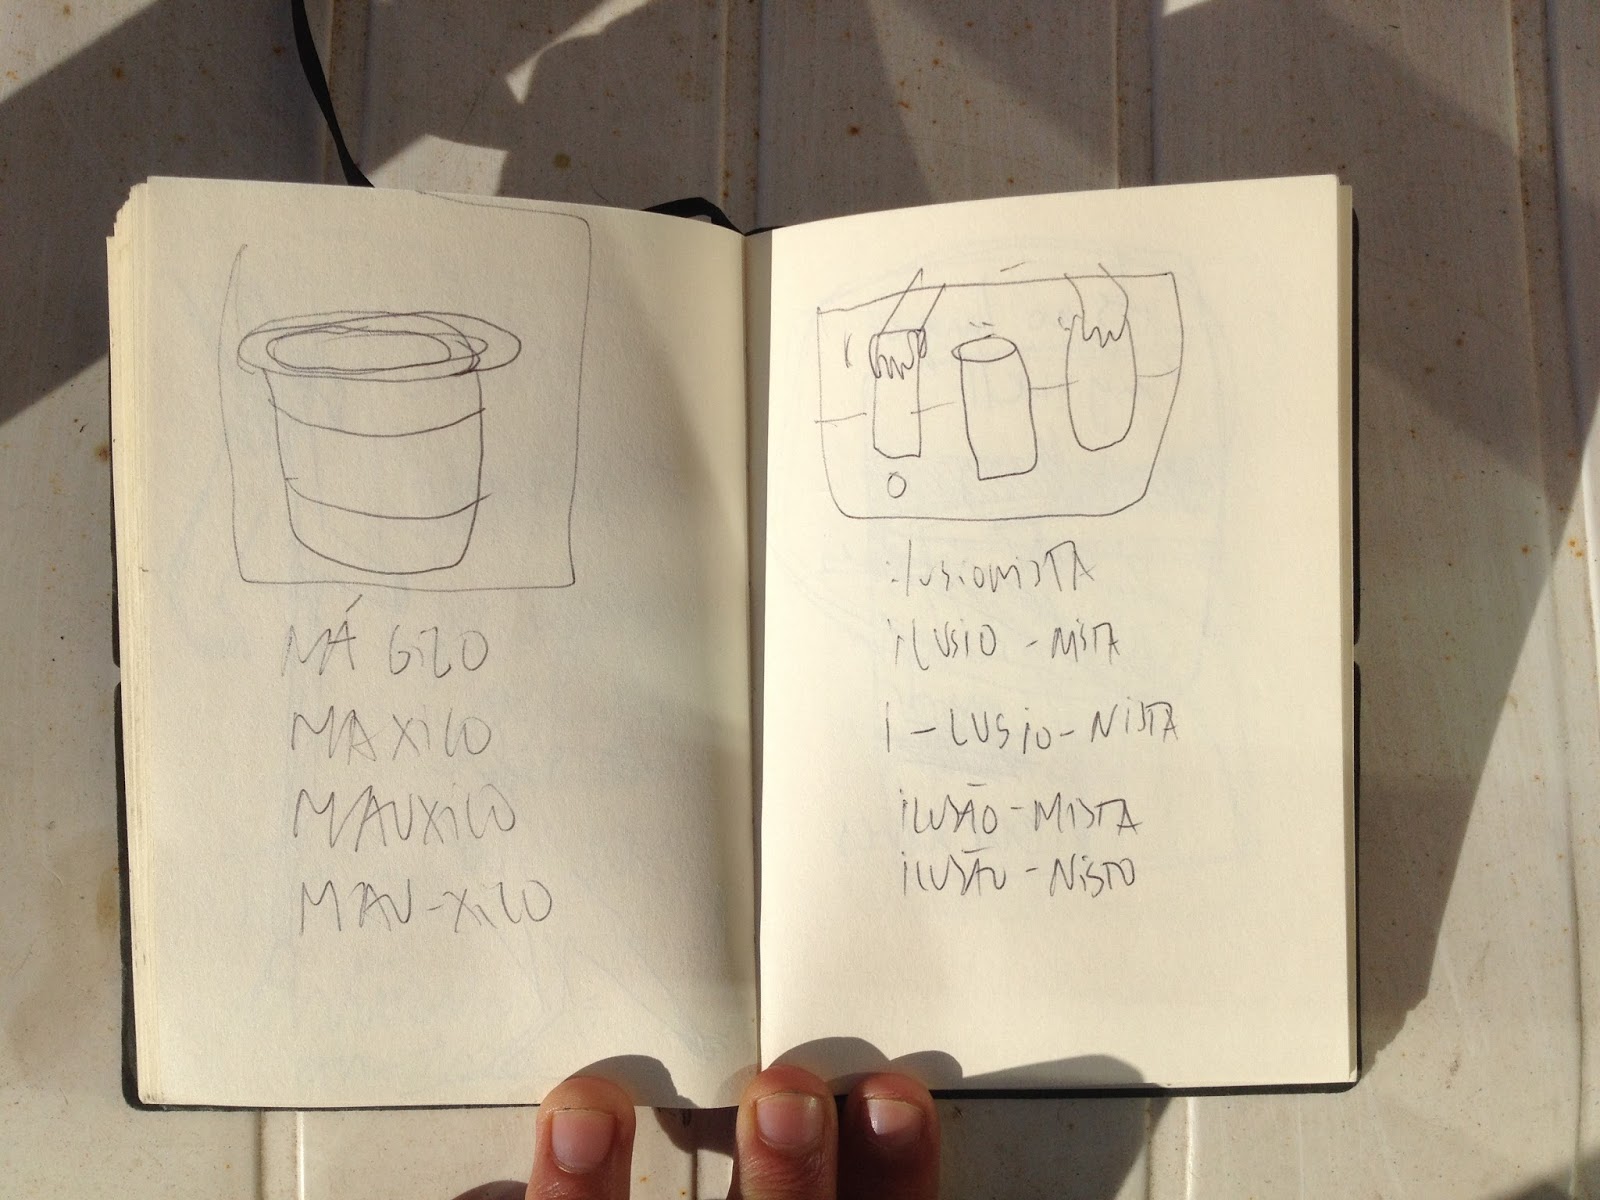 MÁ GIZO
MAXILO
MAUXILO
MAU-XILO
ilusionista
ilusio - nista
i - lusio - nista
ilusão - mista
ilusão - nisto